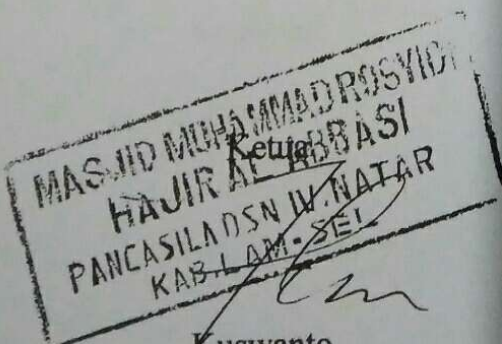 MASJID MUHAMMAD ROSYIDI
Ketua
HAJIR AL-ABBASI
PANCASILA DSN IV. NATAR
KAB. LAM-SEL
Kuswanto